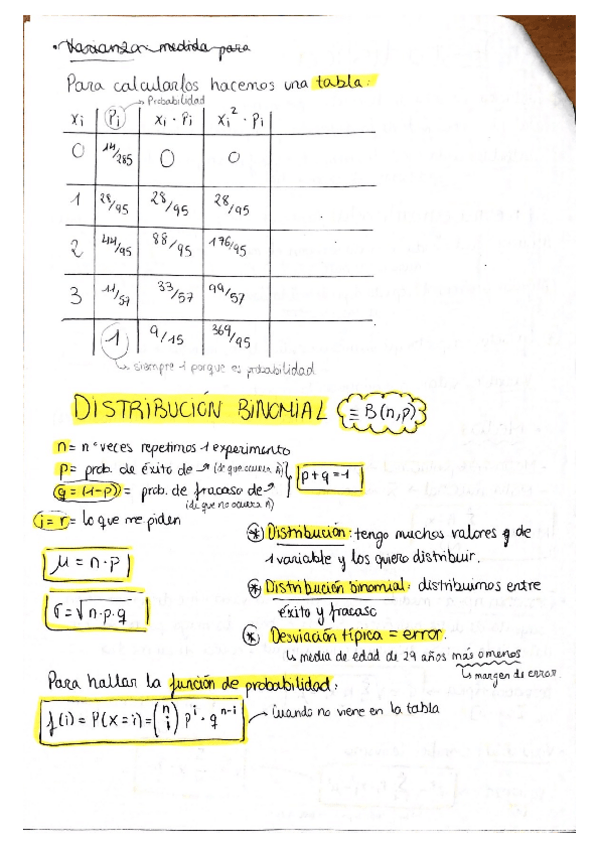 • Varianza: medida para
Para calcularlos hacemos una tabla:
→ Probabilidad
xi | Pi | xi · Pi | xi² · Pi
0 | 14/285 | 0 | 0
1 | 28/95 | 28/95 | 28/95
2 | 44/95 | 88/95 | 176/95
3 | 11/57 | 33/57 | 99/57
1 | 9/15 | 369/95
↳ siempre 1 porque es probabilidad
DISTRIBUCIÓN BINOMIAL ≡ B(n,p)
n = nº veces repetimos 1 experimento
p = prob. de éxito de → (de que ocurra A)
p+q=1
q = (1-p) = prob. de fracaso de →
(de que no ocurra A)
i = r = lo que me piden
* Distribución: tengo muchos valores q de
1 variable y los quiero distribuir.
μ = n·p
* Distribución binomial: distribuimos entre
éxito y fracaso
σ = √n·p·q
* Desviación típica = error.
↳ media de edad de 29 años más o menos
↳ margen de error.
Para hallar la función de probabilidad:
f(i) = P(X=i) = (n i) pⁱ · qⁿ⁻ⁱ → Cuando no viene en la tabla